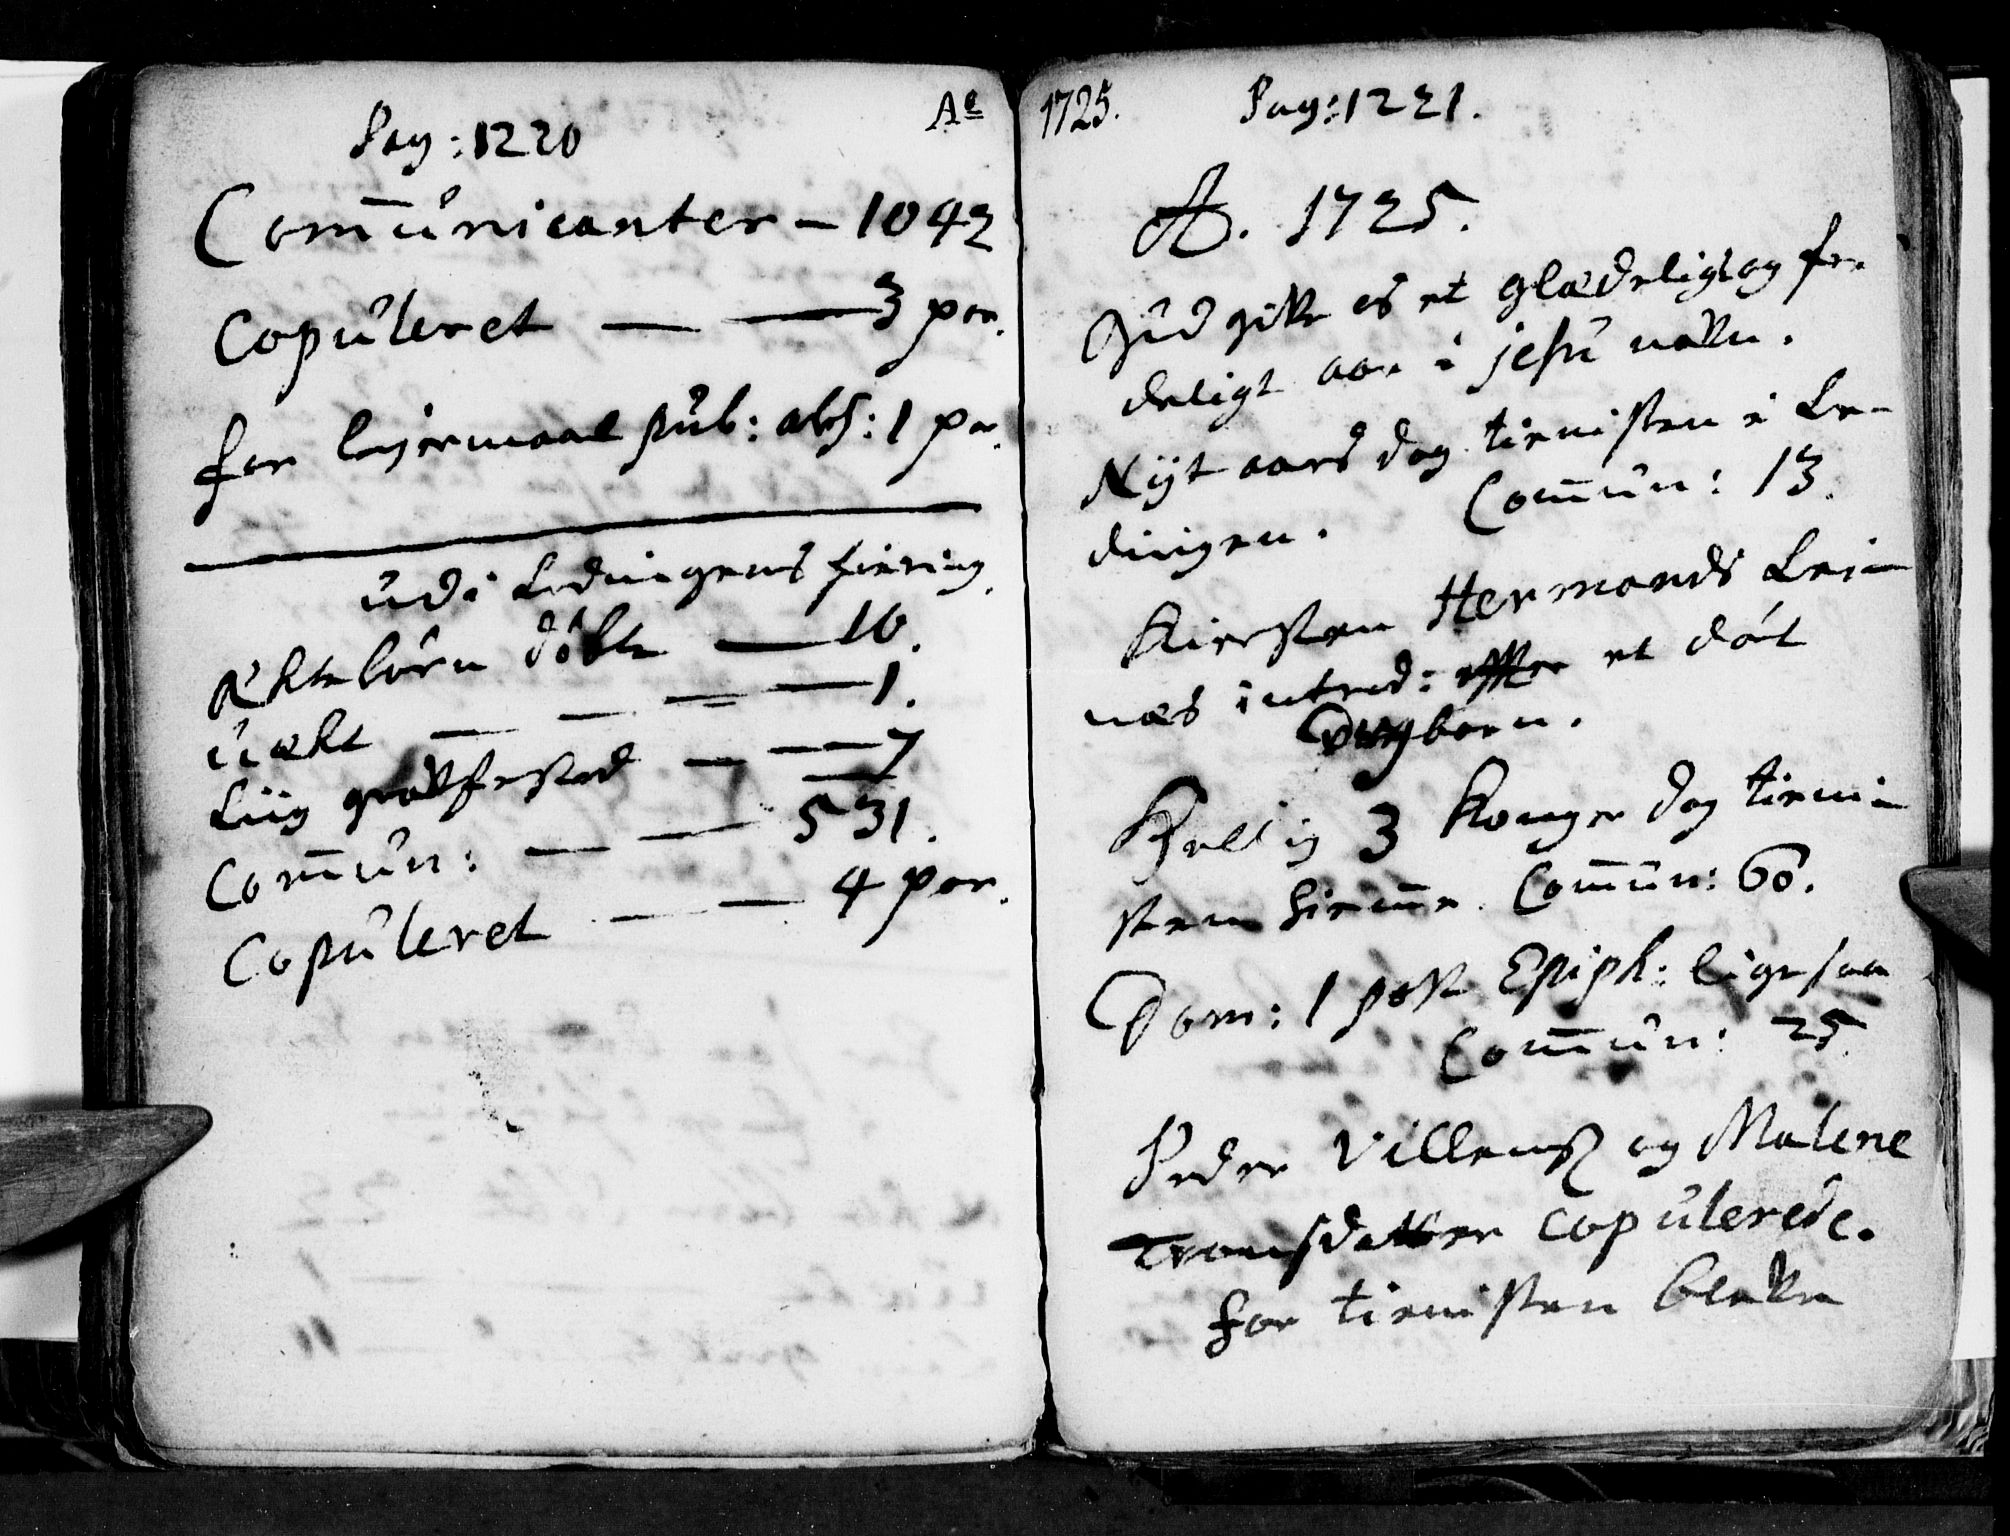 Pag: 1220
Com̄unicanter — 1042
Copuleret — — 3 par.
for leyermaal pub: abs: 1 par.
udi Lødingens fiering.
Ekte børn døbte — 16.
uækt — — — — 1.
Liig gravfested — — 7
Com̄un: — — 531.
Copuleret — — 4 par.
Ao 1725. Pag: 1221.
Ao. 1725.
Gud give os et glædeligt og fre
deligt aar i Jesu navn.
Nyt aars dag tienisten i Lø-
dingen. Com̄un: 13.
Kiersten Hermands Lei-
næs introd: effter et død
Drægbarn.
Hellig 3 Konger dag tieni-
sten hiem̄e. Com̄un: 60.
Dom: 1 post Epiph: ligesaa
Com̄un: 25.
Peder Villensø og Malene
Tromsdatter copulerede.
for tienisten bleve